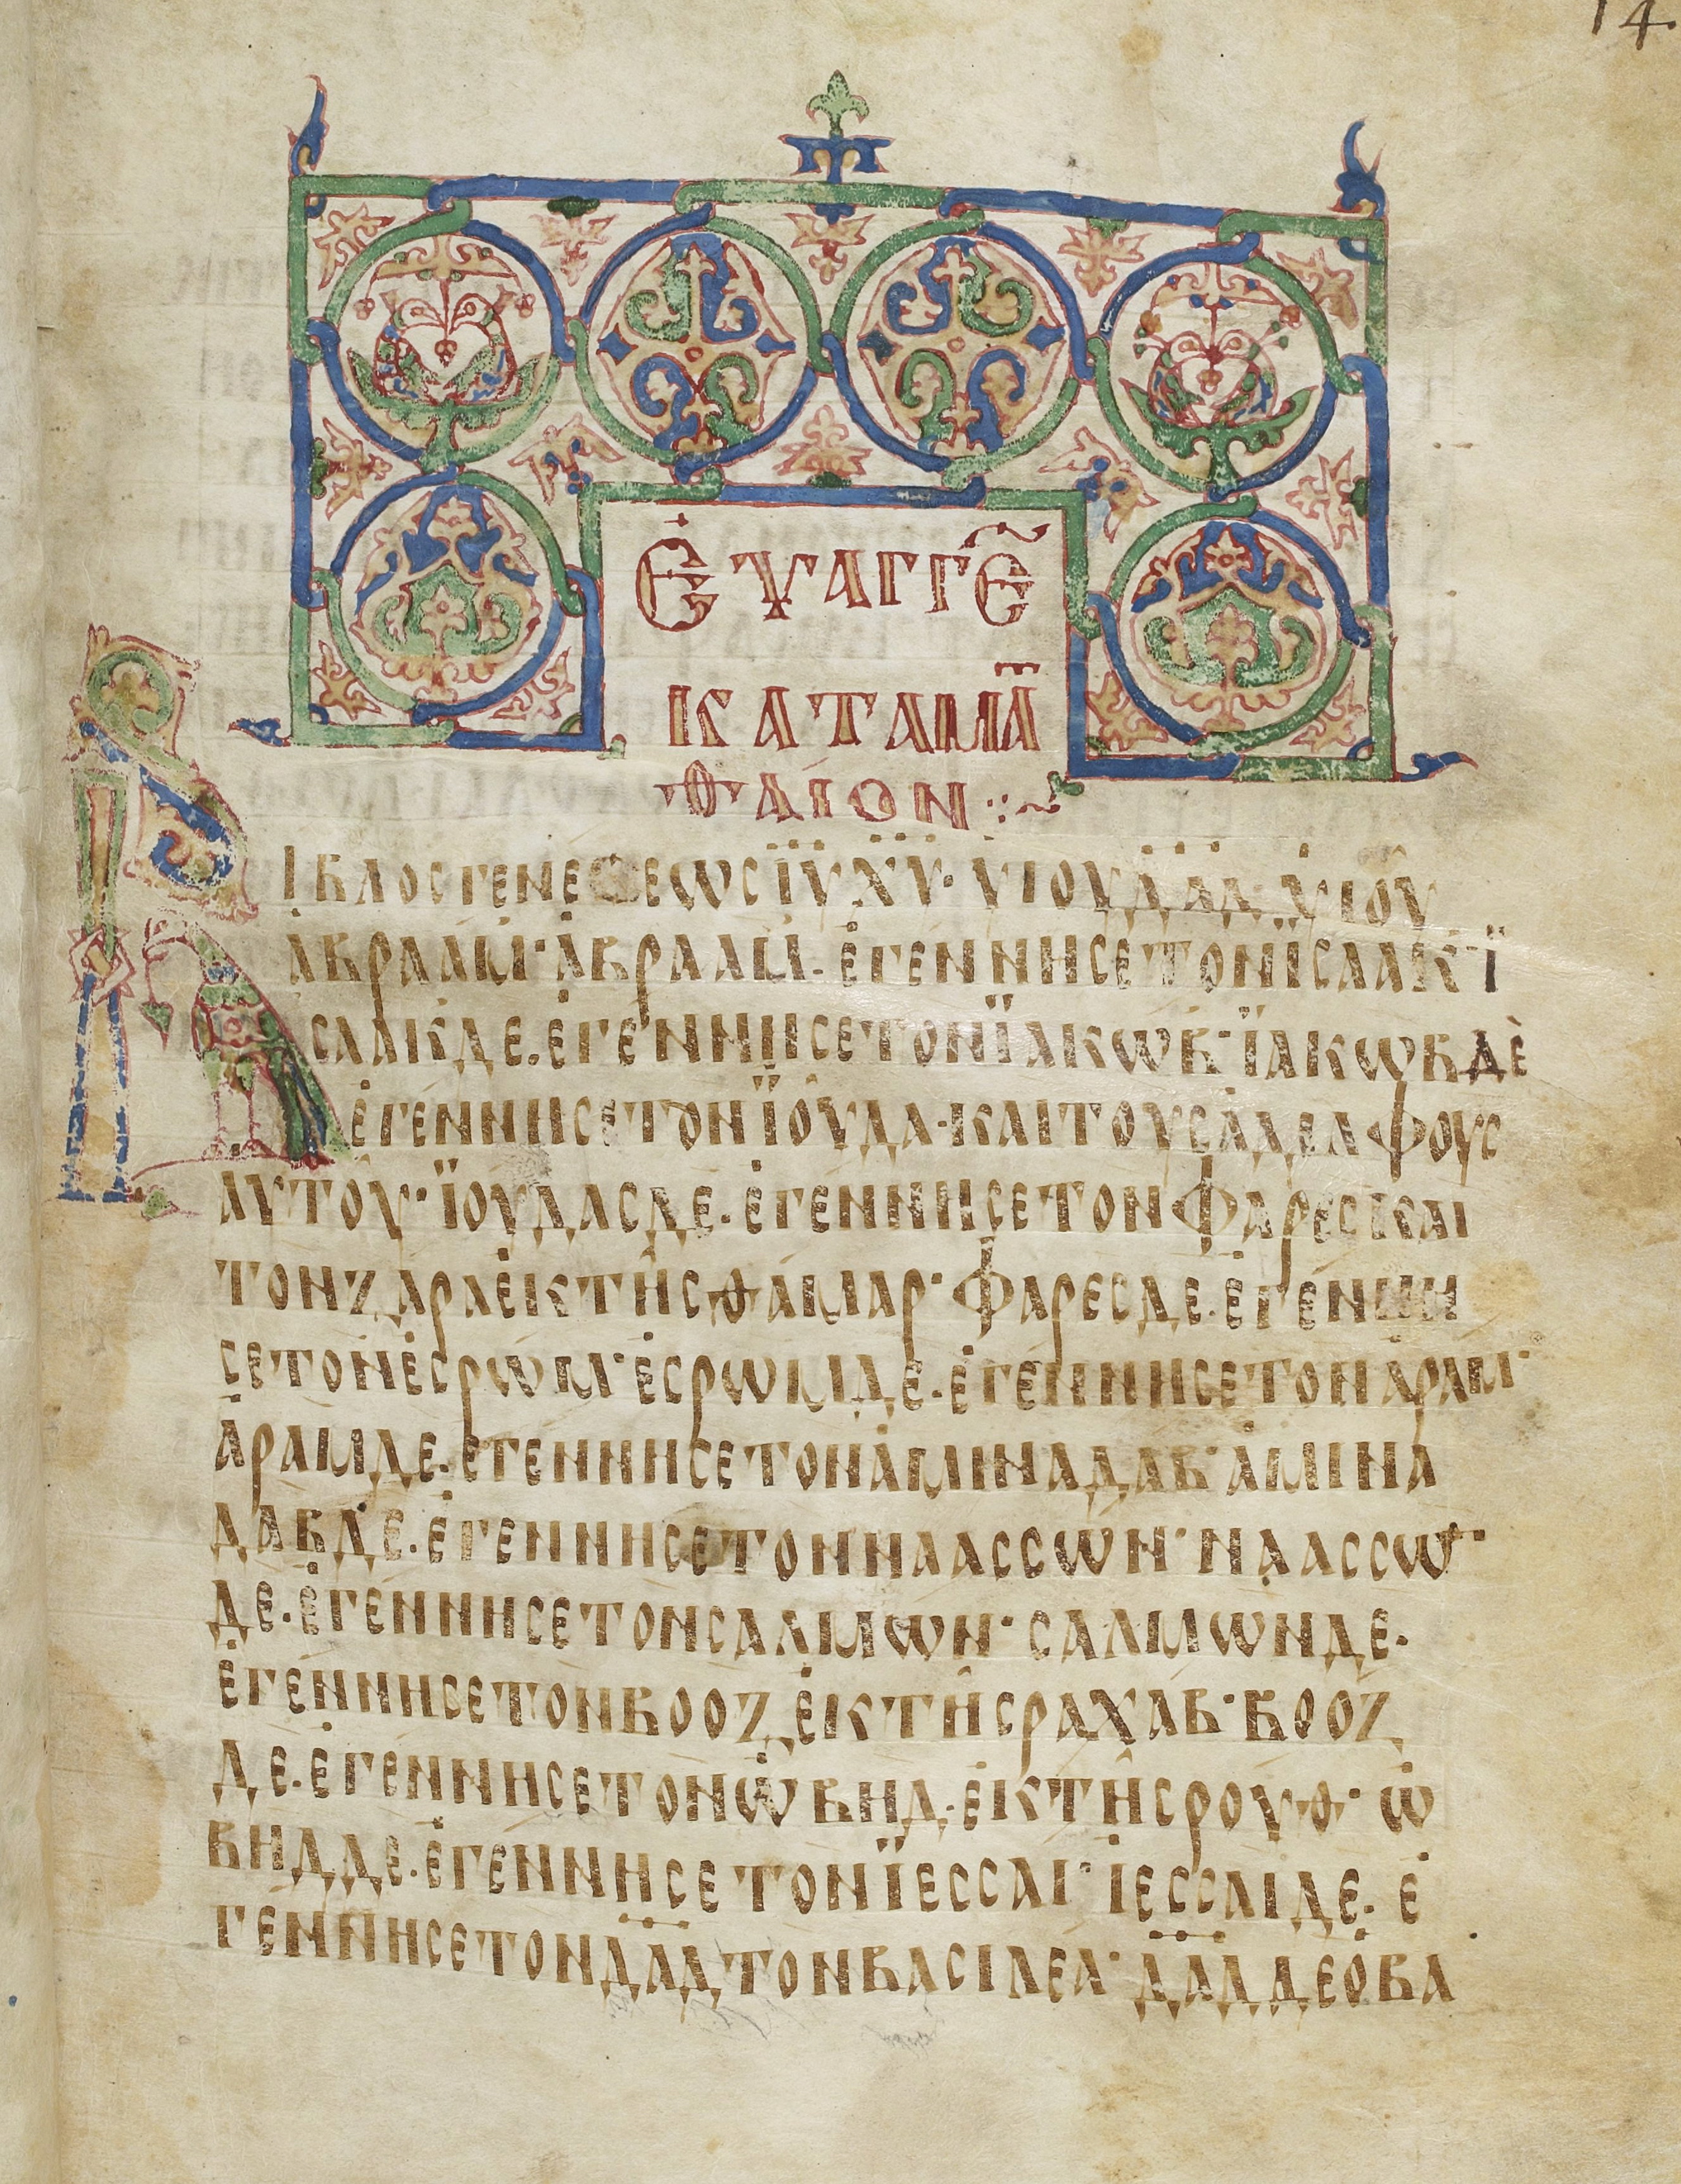 14.
ΕΥΑΓΓΕ
ΚΑΤΑ ΜΑ
ΘΑΙΟΝ
ΒΙΒΛΟΣ ΓΕΝΕΣΕΩΣ ΙΥ ΧΥ· ΥΙΟΥ ΔΑΔ· ΥΙΟΥ
ΑΒΡΑΑΜ· ΑΒΡΑΑΜ· ΕΓΕΝΝΗΣΕ ΤΟΝ ΙΣΑΑΚ· Ι
ΣΑΑΚ ΔΕ· ΕΓΕΝΝΗΣΕ ΤΟΝ ΙΑΚΩΒ· ΙΑΚΩΒ ΔΕ
ΕΓΕΝΝΗΣΕ ΤΟΝ ΙΟΥΔΑ· ΚΑΙ ΤΟΥΣ ΑΔΕΛΦΟΥΣ
ΑΥΤΟΥ· ΙΟΥΔΑΣ ΔΕ· ΕΓΕΝΝΗΣΕ ΤΟΝ ΦΑΡΕΣ ΚΑΙ
ΤΟΝ ΖΑΡΑ ΕΚ ΤΗΣ ΘΑΜΑΡ· ΦΑΡΕΣ ΔΕ· ΕΓΕΝΝΗ
ΣΕ ΤΟΝ ΕΣΡΩΜ· ΕΣΡΩΜ ΔΕ· ΕΓΕΝΝΗΣΕ ΤΟΝ ΑΡΑΜ·
ΑΡΑΜ ΔΕ· ΕΓΕΝΝΗΣΕ ΤΟΝ ΑΜΙΝΑΔΑΒ· ΑΜΙΝΑ
ΔΑΒ ΔΕ· ΕΓΕΝΝΗΣΕ ΤΟΝ ΝΑΑΣΣΩΝ· ΝΑΑΣΣΩ
ΔΕ· ΕΓΕΝΝΗΣΕ ΤΟΝ ΣΑΛΜΩΝ· ΣΑΛΜΩΝ ΔΕ·
ΕΓΕΝΝΗΣΕ ΤΟΝ ΒΟΟΖ ΕΚ ΤΗΣ ΡΑΧΑΒ· ΒΟΟΖ
ΔΕ· ΕΓΕΝΝΗΣΕ ΤΟΝ ΩΒΗΔ· ΕΚ ΤΗΣ ΡΟΥΘ· Ω
ΒΗΔ ΔΕ· ΕΓΕΝΝΗΣΕ ΤΟΝ ΙΕΣΣΑΙ· ΙΕΣΣΑΙ ΔΕ· Ε
ΓΕΝΝΗΣΕ ΤΟΝ ΔΑΔ ΤΟΝ ΒΑΣΙΛΕΑ· ΔΑΔ ΔΕ Ο ΒΑ